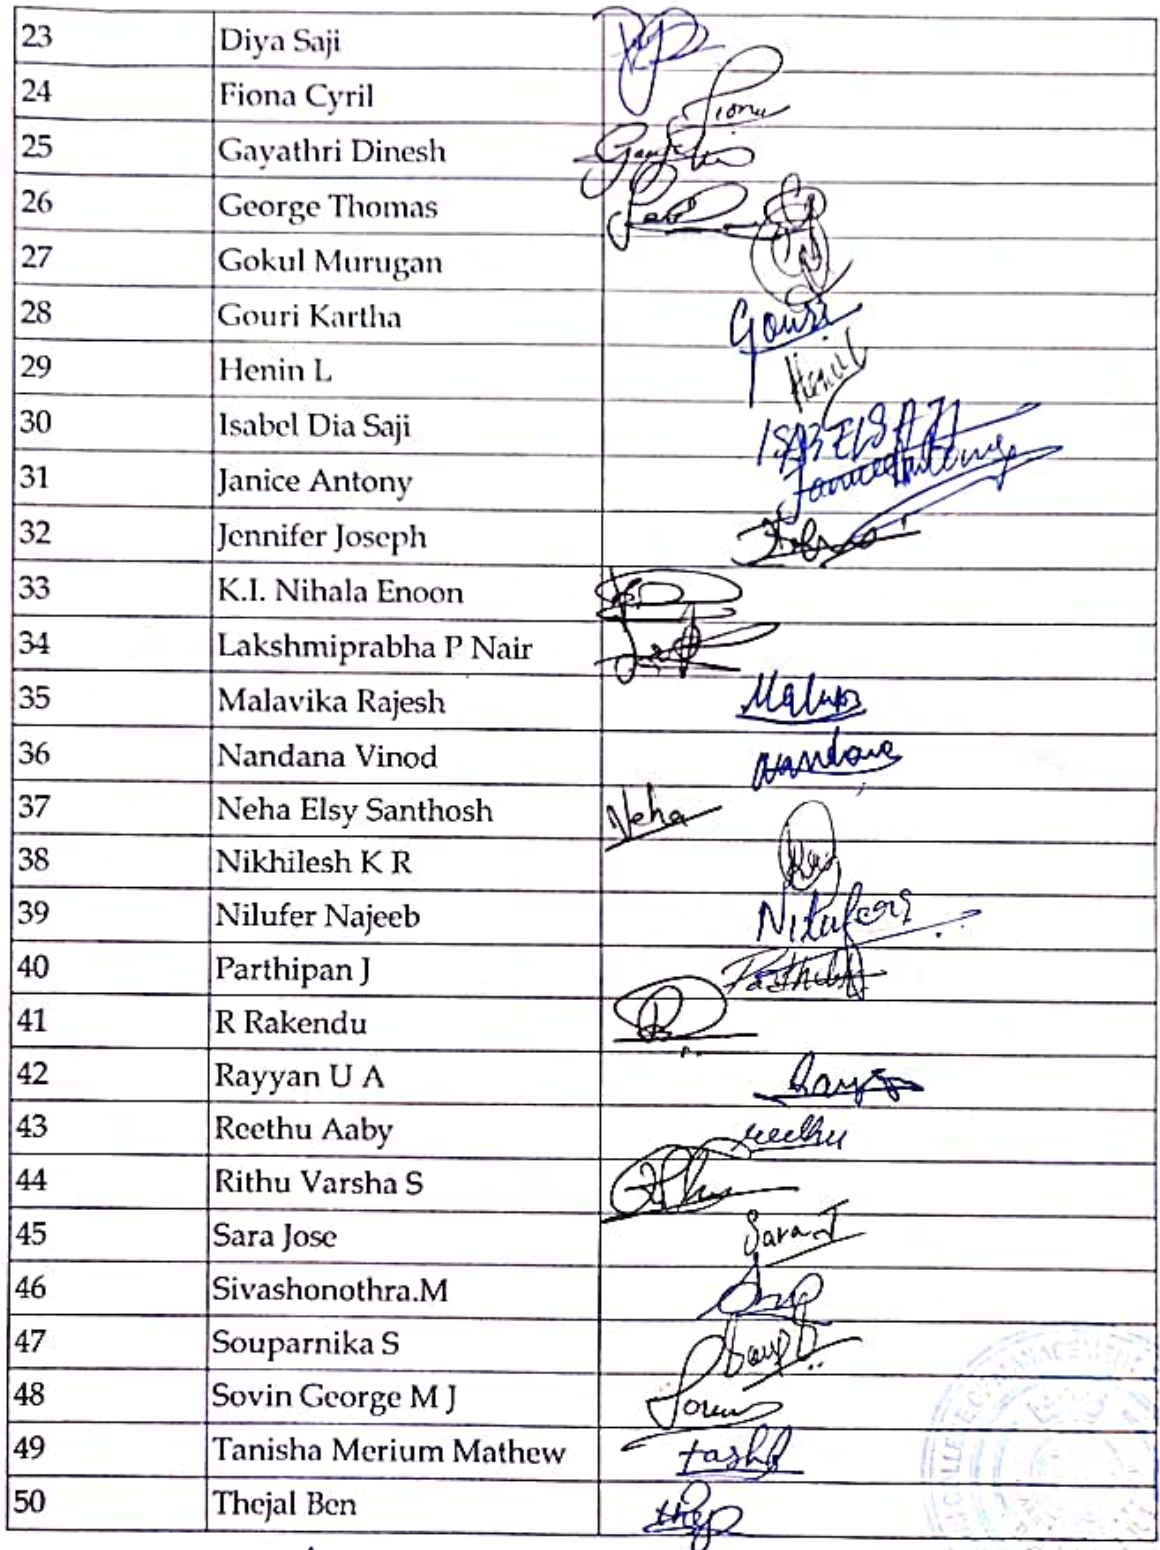 23 Diya Saji
24 Fiona Cyril Fiona
25 Gayathri Dinesh
26 George Thomas
27 Gokul Murugan
28 Gouri Kartha Gouri
29 Henin L Henin L
30 Isabel Dia Saji ISABEL SAJI
31 Janice Antony Janice Antony
32 Jennifer Joseph
33 K.I. Nihala Enoon
34 Lakshmiprabha P Nair
35 Malavika Rajesh
36 Nandana Vinod Nandana
37 Neha Elsy Santhosh Neha
38 Nikhilesh K R
39 Nilufer Najeeb Nilufer
40 Parthipan J
41 R Rakendu
42 Rayyan U A
43 Reethu Aaby reethu
44 Rithu Varsha S
45 Sara Jose Sara J
46 Sivashonothra.M
47 Souparnika S
48 Sovin George M J
49 Tanisha Merium Mathew
50 Thejal Ben
COLLEGE OF MANAGEMENT